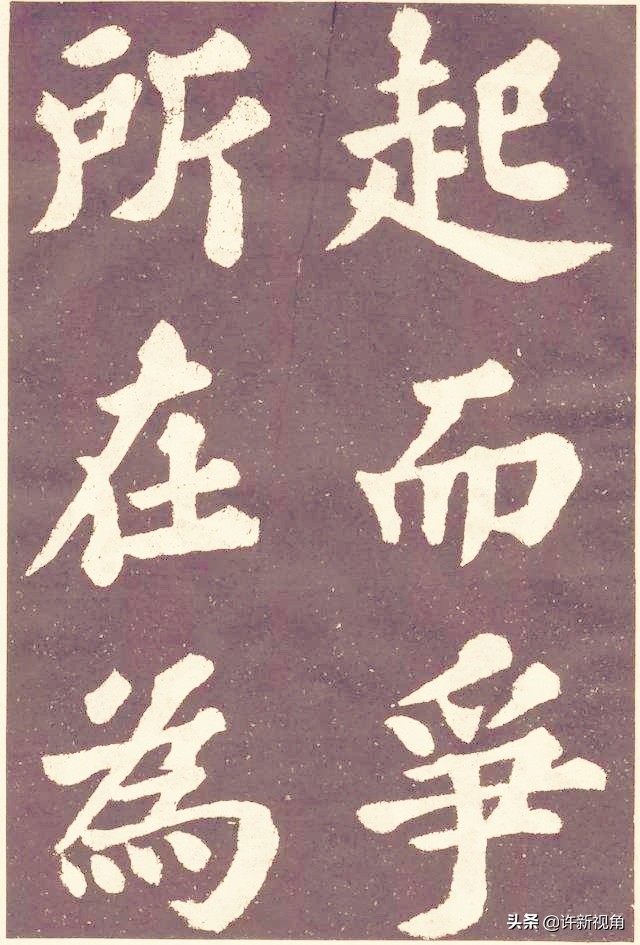 起而爭
所在為
头条 @许新视角